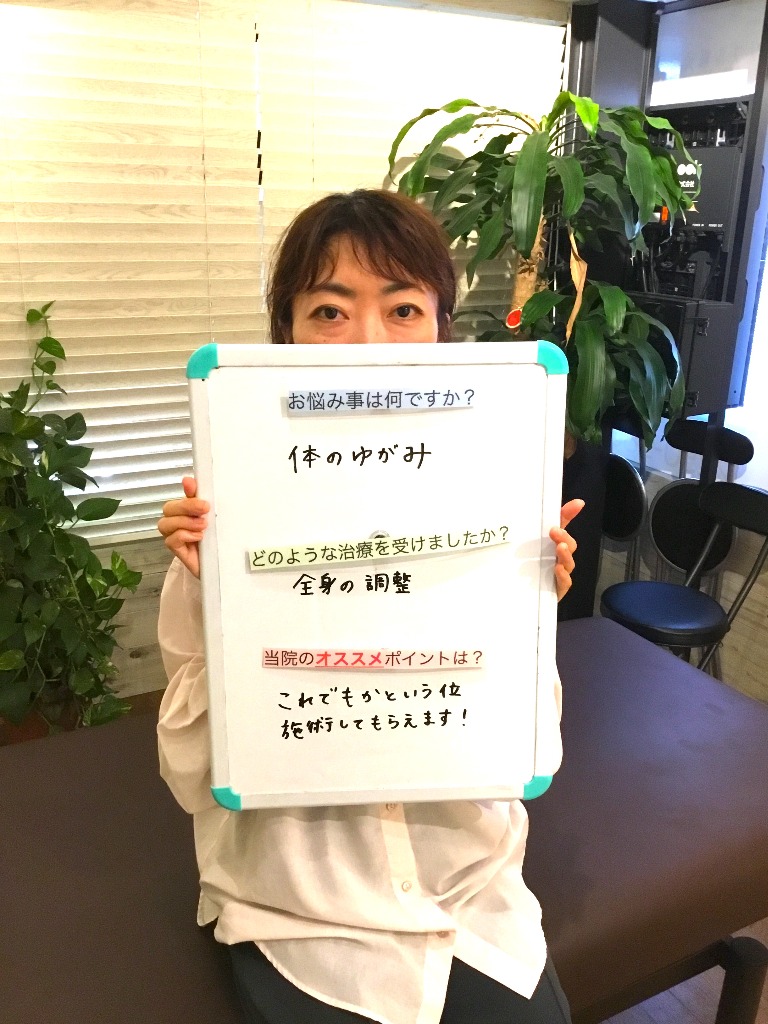 お悩み事は何ですか？
体のゆがみ
どのような治療を受けましたか？
全身の調整
当院のオススメポイントは？
これでもかという位
施術してもらえます！